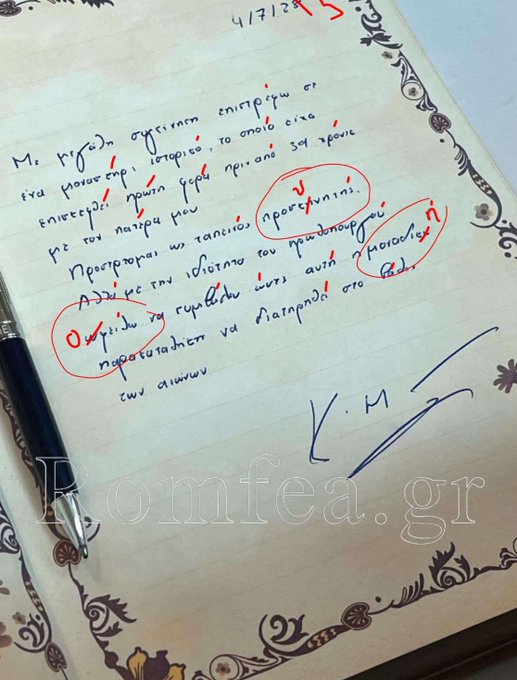 4/7/23
Με μεγάλη συγκείνηση επιστρέφω σε
ένα μοναστήρι ιστορικό, το οποίο είχα
επισκεφθεί πρώτη φορά πριν από 39 χρόνια
με τον πατέρα μου
υ
Προσέρχομαι ως ταπεινός προσκηνητής.
Αλλά με την ιδιότητα του πρωθυπουργού
ή
Ο ωφείλω να συμβάλω ώστε αυτή η
παρακαταθήκη να διατηρηθεί στο βάθος
των αιώνων
Κ.Μ
Romfea.gr